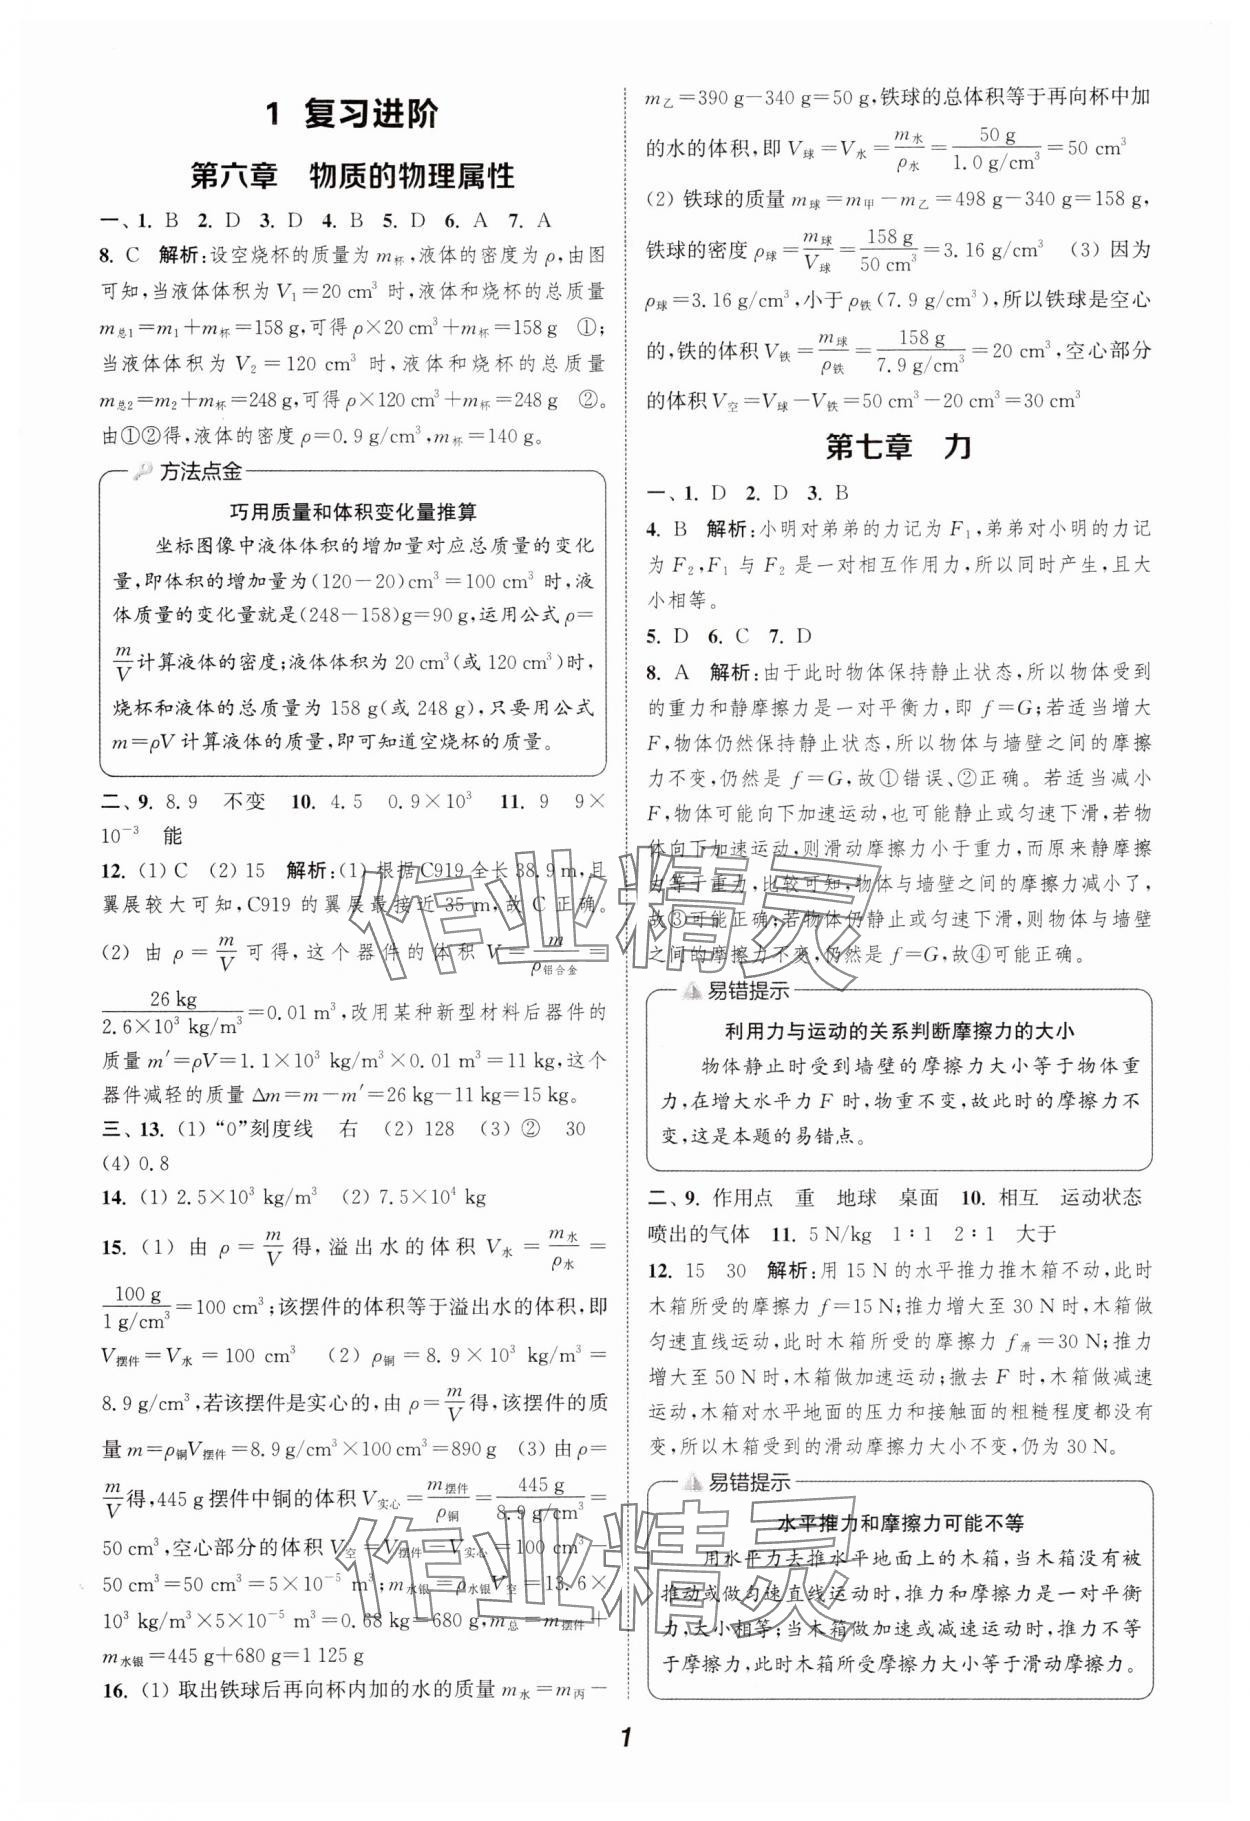 1 复习进阶
第六章 物质的物理属性
一、1. B 2. D 3. D 4. B 5. D 6. A 7. A
8. C 解析:设空烧杯的质量为 m杯,液体的密度为 ρ,由图
可知,当液体体积为 V₁=20 cm³ 时,液体和烧杯的总质量
m总1=m₁+m杯=158 g,可得 ρ×20 cm³+m杯=158 g ①;
当液体体积为 V₂=120 cm³ 时,液体和烧杯的总质量
m总2=m₂+m杯=248 g,可得 ρ×120 cm³+m杯=248 g ②。
由①②得,液体的密度 ρ=0.9 g/cm³,m杯=140 g。
方法点金
巧用质量和体积变化量推算
坐标图像中液体体积的增加量对应总质量的变化
量,即体积的增加量为(120-20)cm³=100 cm³ 时,液
体质量的变化量就是(248-158)g=90 g,运用公式 ρ=
m/V 计算液体的密度;液体体积为 20 cm³(或 120 cm³)时,
烧杯和液体的总质量为 158 g(或 248 g),只要用公式
m=ρV 计算液体的质量,即可知道空烧杯的质量。
二、9. 8.9 不变 10. 4.5 0.9×10³ 11. 9 9×
10⁻³ 能
12. (1) C (2) 15 解析:(1) 根据C919全长38.9 m,且
翼展较大可知,C919 的翼展最接近 35 m,故 C 正确。
(2) 由 ρ=m/V 可得,这个器件的体积 V=m/ρ铝合金=
26 kg/2.6×10³ kg/m³=0.01 m³,改用某种新型材料后器件的
质量 m′=ρV=1.1×10³ kg/m³×0.01 m³=11 kg,这个
器件减轻的质量 Δm=m-m′=26 kg-11 kg=15 kg。
三、13. (1) “0”刻度线 右 (2) 128 (3) ② 30
(4) 0.8
14. (1) 2.5×10³ kg/m³ (2) 7.5×10⁴ kg
15. (1) 由 ρ=m/V 得,溢出水的体积 V水=m水/ρ水=
100 g/1 g/cm³=100 cm³;该摆件的体积等于溢出水的体积,即
V摆件=V水=100 cm³ (2) ρ铜=8.9×10³ kg/m³=
8.9 g/cm³,若该摆件是实心的,由 ρ=m/V 得,该摆件的质
量 m=ρ铜V摆件=8.9 g/cm³×100 cm³=890 g (3) 由 ρ=
m/V 得,445 g 摆件中铜的体积 V实心=m摆件/ρ铜=445 g/8.9 g/cm³=
50 cm³,空心部分的体积 V空=V摆件-V实心=100 cm³-
50 cm³=50 cm³=5×10⁻⁵ m³;m水银=ρ水银V空=13.6×
10³ kg/m³×5×10⁻⁵ m³=0.68 kg=680 g,m总=m摆件+
m水银=445 g+680 g=1 125 g
16. (1) 取出铁球后再向杯内加的水的质量 m水=m丙-
m乙=390 g-340 g=50 g,铁球的总体积等于再向杯中加
的水的体积,即 V球=V水=m水/ρ水=50 g/1.0 g/cm³=50 cm³
(2) 铁球的质量 m球=m甲-m乙=498 g-340 g=158 g,
铁球的密度 ρ球=m球/V球=158 g/50 cm³=3.16 g/cm³ (3) 因为
ρ球=3.16 g/cm³,小于 ρ铁(7.9 g/cm³),所以铁球是空心
的,铁的体积 V铁=m球/ρ铁=158 g/7.9 g/cm³=20 cm³,空心部分
的体积 V空=V球-V铁=50 cm³-20 cm³=30 cm³
第七章 力
一、1. D 2. D 3. B
4. B 解析:小明对弟弟的力记为 F₁,弟弟对小明的力记
为 F₂,F₁ 与 F₂ 是一对相互作用力,所以同时产生,且大
小相等。
5. D 6. C 7. D
8. A 解析:由于此时物体保持静止状态,所以物体受到
的重力和静摩擦力是一对平衡力,即 f=G;若适当增大
F,物体仍然保持静止状态,所以物体与墙壁之间的摩擦
力不变,仍然是 f=G,故①错误、②正确。若适当减小
F,物体可能向下加速运动,也可能静止或匀速下滑,若物
体向下加速运动,则滑动摩擦力小于重力,而原来静摩擦
力等于重力,比较可知,物体与墙壁之间的摩擦力减小了,
故③可能正确;若物体仍静止或匀速下滑,则物体与墙壁
之间的摩擦力不变,仍然是 f=G,故④可能正确。
易错提示
利用力与运动的关系判断摩擦力的大小
物体静止时受到墙壁的摩擦力大小等于物体重
力,在增大水平力 F 时,物重不变,故此时的摩擦力不
变,这是本题的易错点。
二、9. 作用点 重 地球 桌面 10. 相互 运动状态
喷出的气体 11. 5 N/kg 1∶1 2∶1 大于
12. 15 30 解析:用 15 N 的水平推力推木箱不动,此时
木箱所受的摩擦力 f=15 N;推力增大至 30 N 时,木箱做
匀速直线运动,此时木箱所受的摩擦力 f滑=30 N;推力
增大至 50 N 时,木箱做加速运动;撤去 F 时,木箱做减速
运动,木箱对水平地面的压力和接触面的粗糙程度都没有
变,所以木箱受到的滑动摩擦力大小不变,仍为 30 N。
易错提示
水平推力和摩擦力可能不等
用水平力去推水平地面上的木箱,当木箱没有被
推动或做匀速直线运动时,推力和摩擦力是一对平衡
力,大小相等;当木箱做加速或减速运动时,推力不等
于摩擦力,此时木箱所受摩擦力大小等于滑动摩擦力。
作业精灵
作业精灵
1